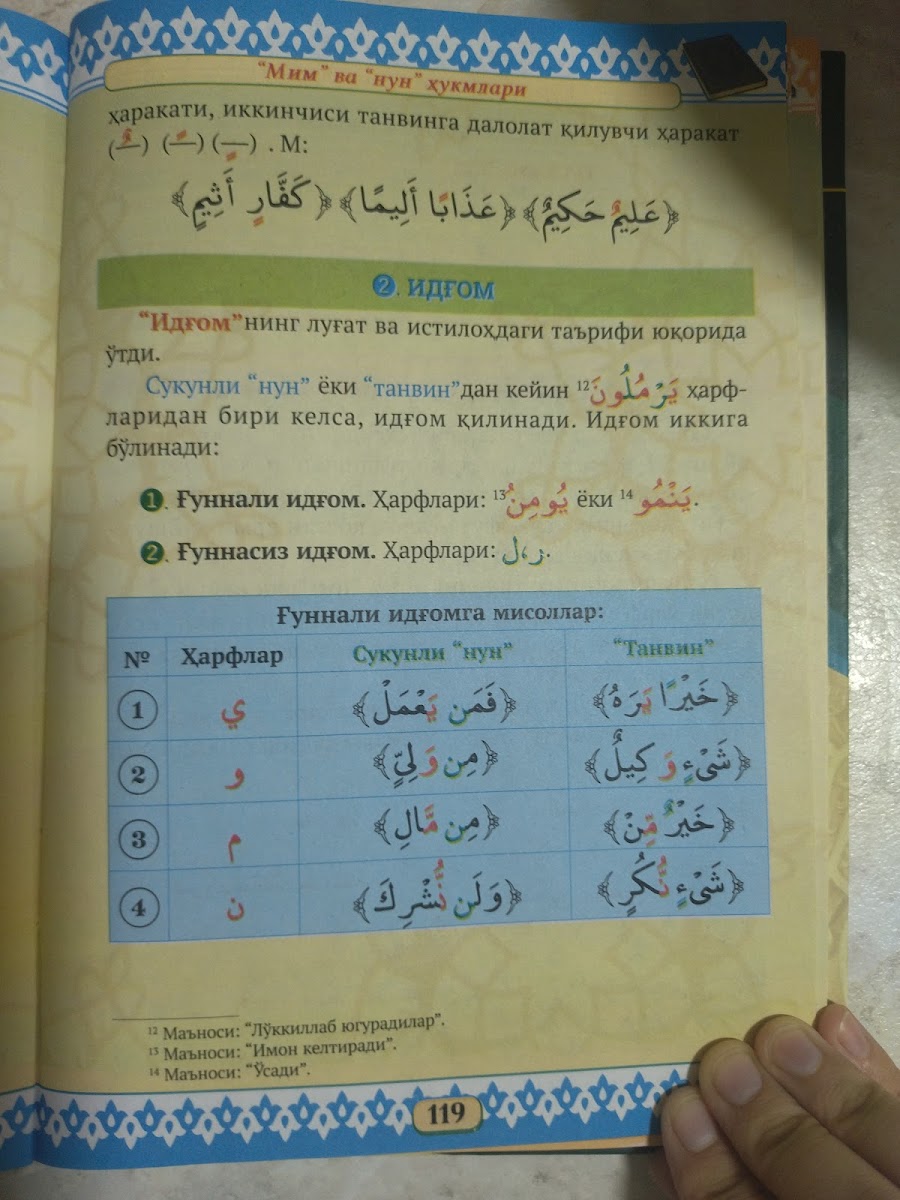 “Мим” ва “нун” ҳукмлари
ҳаракати, иккинчиси танвинга далолат қилувчи ҳаракат
(ـٌـ) (ـًـ) (ـٍـ) . М:
﴿عَلِيمٌ حَكِيمٌ﴾ ﴿عَذَابًا أَلِيمًا﴾ ﴿كَفَّارٍ أَثِيمٍ﴾
2. ИДҒОМ
“Идғом”нинг луғат ва истилоҳдаги таърифи юқорида
ўтди.
Сукунли “нун” ёки “танвин”дан кейин ¹² يَرْمُلُونَ ҳарф-
ларидан бири келса, идғом қилинади. Идғом иккига
бўлинади:
1. Ғуннали идғом. Ҳарфлари: ¹³ يُومِنُ ёки ¹⁴ يَنْمُو.
2. Ғуннасиз идғом. Ҳарфлари: ر، ل.
Ғуннали идғомга мисоллар:
№ Ҳарфлар Сукунли “нун” “Танвин”
1 ي ﴿فَمَن يَعْمَلْ﴾ ﴿خَيْرًا يَرَهُ﴾
2 و ﴿مِن وَلِيٍّ﴾ ﴿شَىْءٍ وَكِيلٌ﴾
3 م ﴿مِن مَّالِ﴾ ﴿خَيْرٌ مِّنْ﴾
4 ن ﴿وَلَن نُّشْرِكَ﴾ ﴿شَىْءٍ نُّكُرٍ﴾
¹² Маъноси: “Лўккиллаб югурадилар”.
¹³ Маъноси: “Имон келтиради”.
¹⁴ Маъноси: “Ўсади”.
119